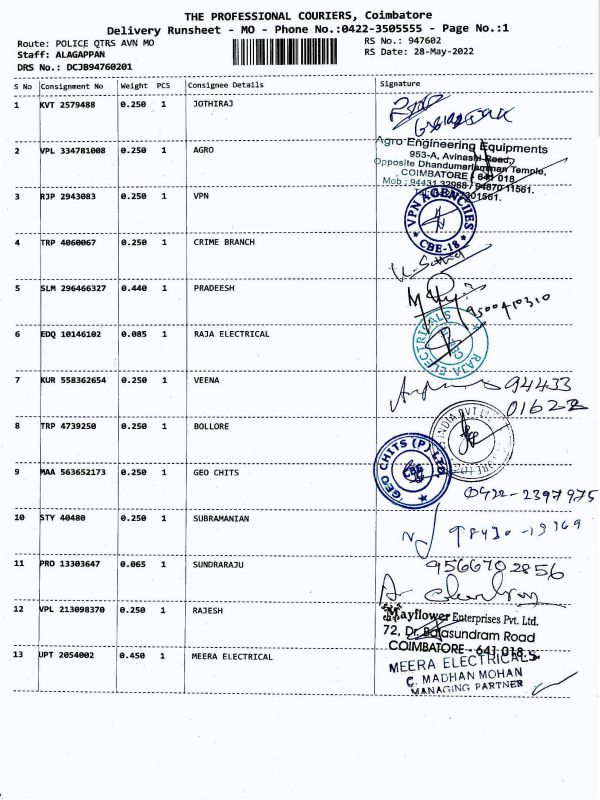 THE PROFESSIONAL COURIERS, Coimbatore
Delivery Runsheet - MO - Phone No.:0422-3505555 - Page No.:1
Route: POLICE QTRS AVN MO
RS No.: 947602
Staff: ALAGAPPAN
RS Date: 28-May-2022
DRS No.: DCJB94760201
S No Consignment No Weight PCS Consignee Details Signature
1 KVT 2579488 0.250 1 JOTHIRAJ
2 VPL 334781008 0.250 1 AGRO
Agro Engineering Equipments
953-A, Avinashi Road,
Opposite Dhandumariamman Temple,
COIMBATORE - 641 018
Mob : 94431 32968 / 94870 11561.
3 RJP 2943083 0.250 1 VPN
VPN AGENCIIES
CBE-18
4 TRP 4060067 0.250 1 CRIME BRANCH
5 SLM 296466327 0.440 1 PRADEESH
9500410310
6 EDQ 10146102 0.085 1 RAJA ELECTRICAL
RAJA ELECTRICALS
7 KUR 558362654 0.250 1 VEENA
94433
01622
8 TRP 4739250 0.250 1 BOLLORE
INDIA PVT
9 MAA 563652173 0.250 1 GEO CHITS
GEO CHITS (P) LTD
CBE
0422-2397975
10 STY 40480 0.250 1 SUBRAMANIAN
98430-19369
11 PRO 13303647 0.065 1 SUNDRARAJU
9566702856
12 VPL 213098370 0.250 1 RAJESH
Mayflower Enterprises Pvt. Ltd.
72, Dr. Balasundram Road
COIMBATORE - 641 018.
13 UPT 2054002 0.450 1 MEERA ELECTRICAL
MEERA ELECTRICALS
C. MADHAN MOHAN
MANAGING PARTNER